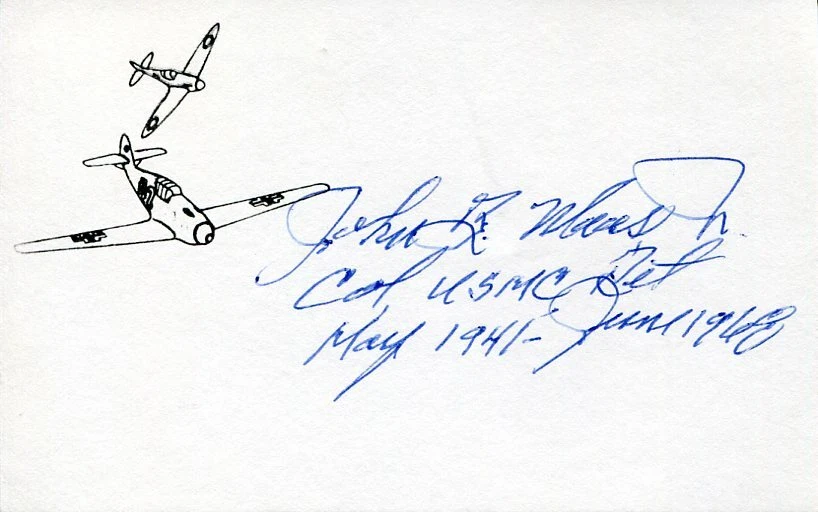 John B. Maas Jr.
Col, USMC Ret
May 1941- June 1968